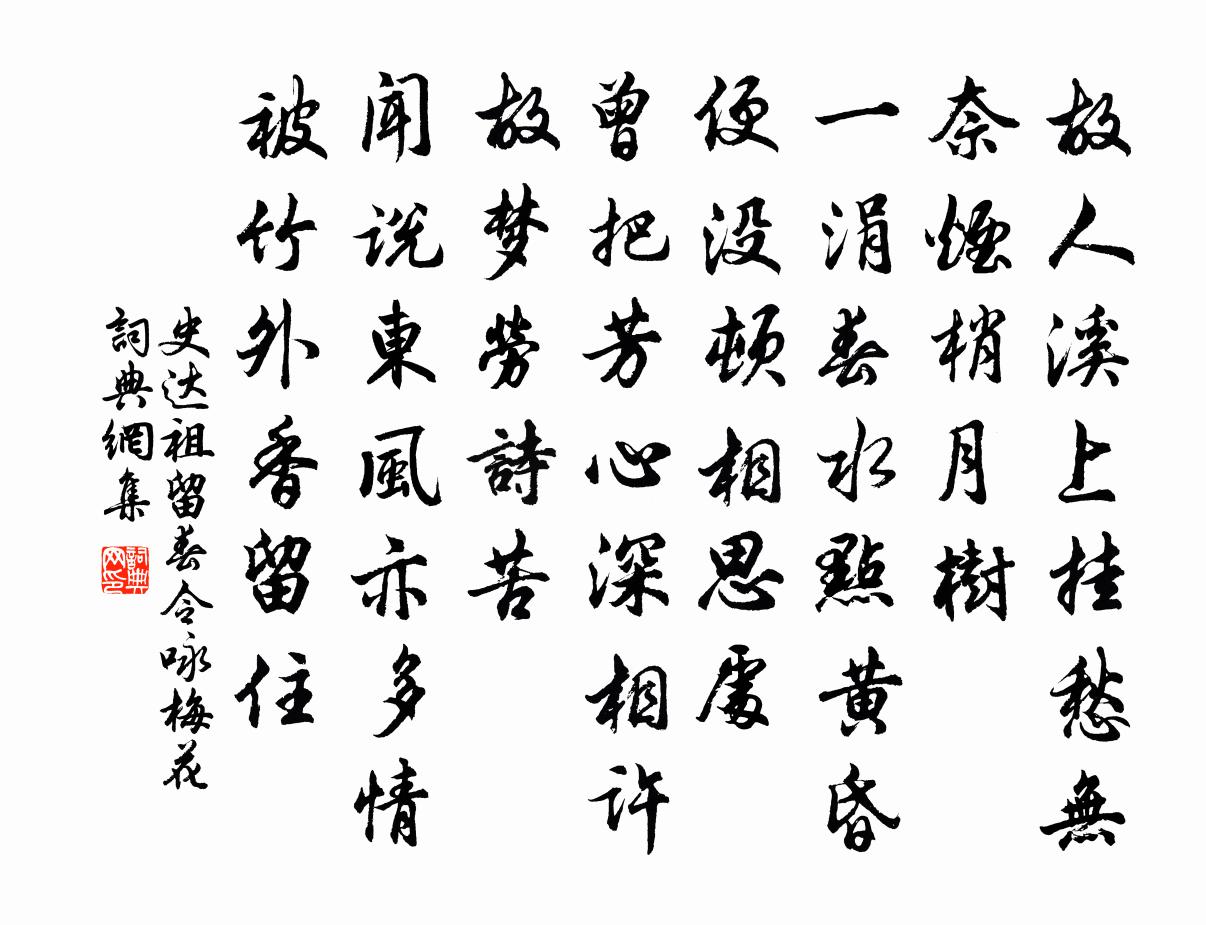 故人溪上挂愁無
奈煙梢月樹
一涓春水點黄昏
便没頓相思處
曾把芳心深相許
故梦勞詩苦
聞说東風亦多情
被竹外香留住
史达祖留春令咏梅花
詞典網集
詞典网印